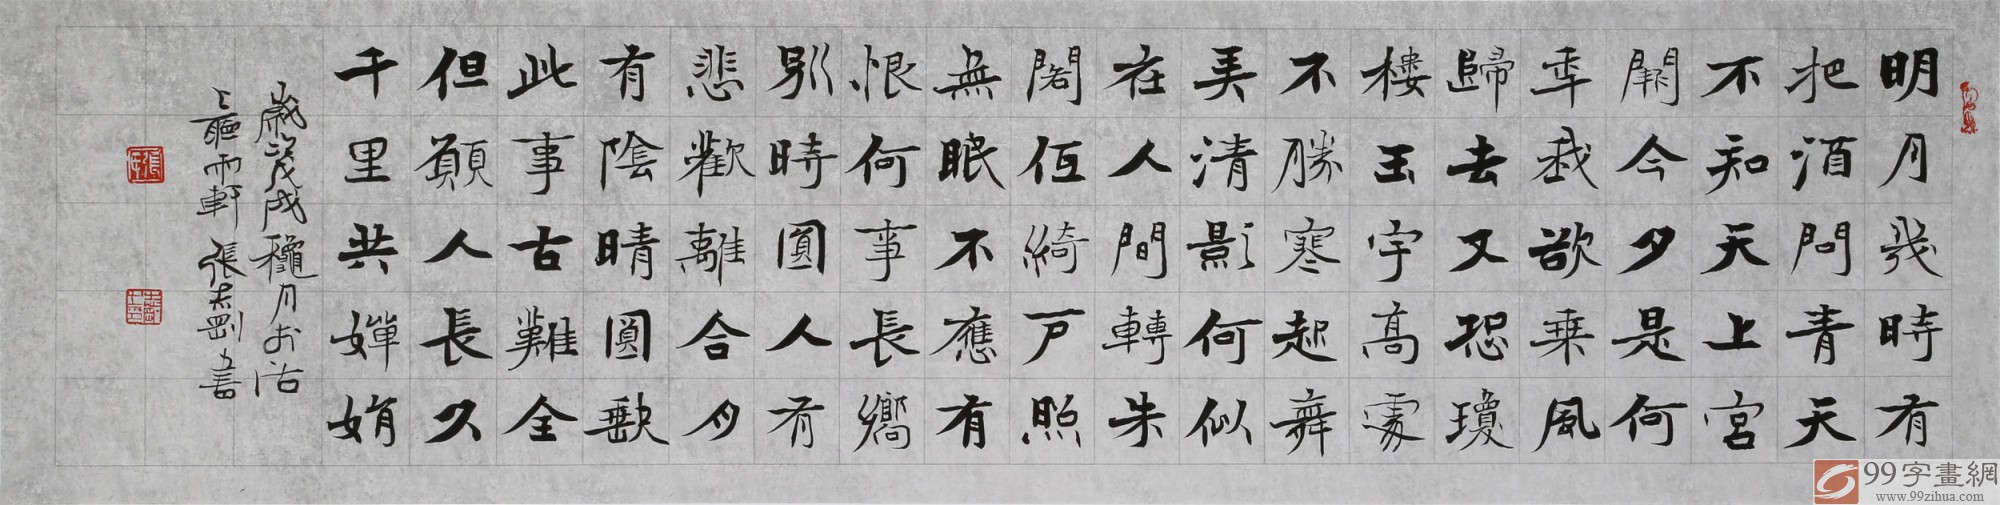 明月幾時有
把酒問青天
不知天上宮
闕今夕是何
年我欲乘風
歸去又恐瓊
樓玉宇高處
不勝寒起舞
弄清影何似
在人間轉朱
閣低綺戶照
無眠不應有
恨何事長嚮
別時圓人有
悲歡離合月
有陰晴圓缺
此事古難全
但願人長久
千里共嬋娟
歲次戊戌龝月於沽
上聽雨軒張志剛書
99字畫網
www.99zihua.com